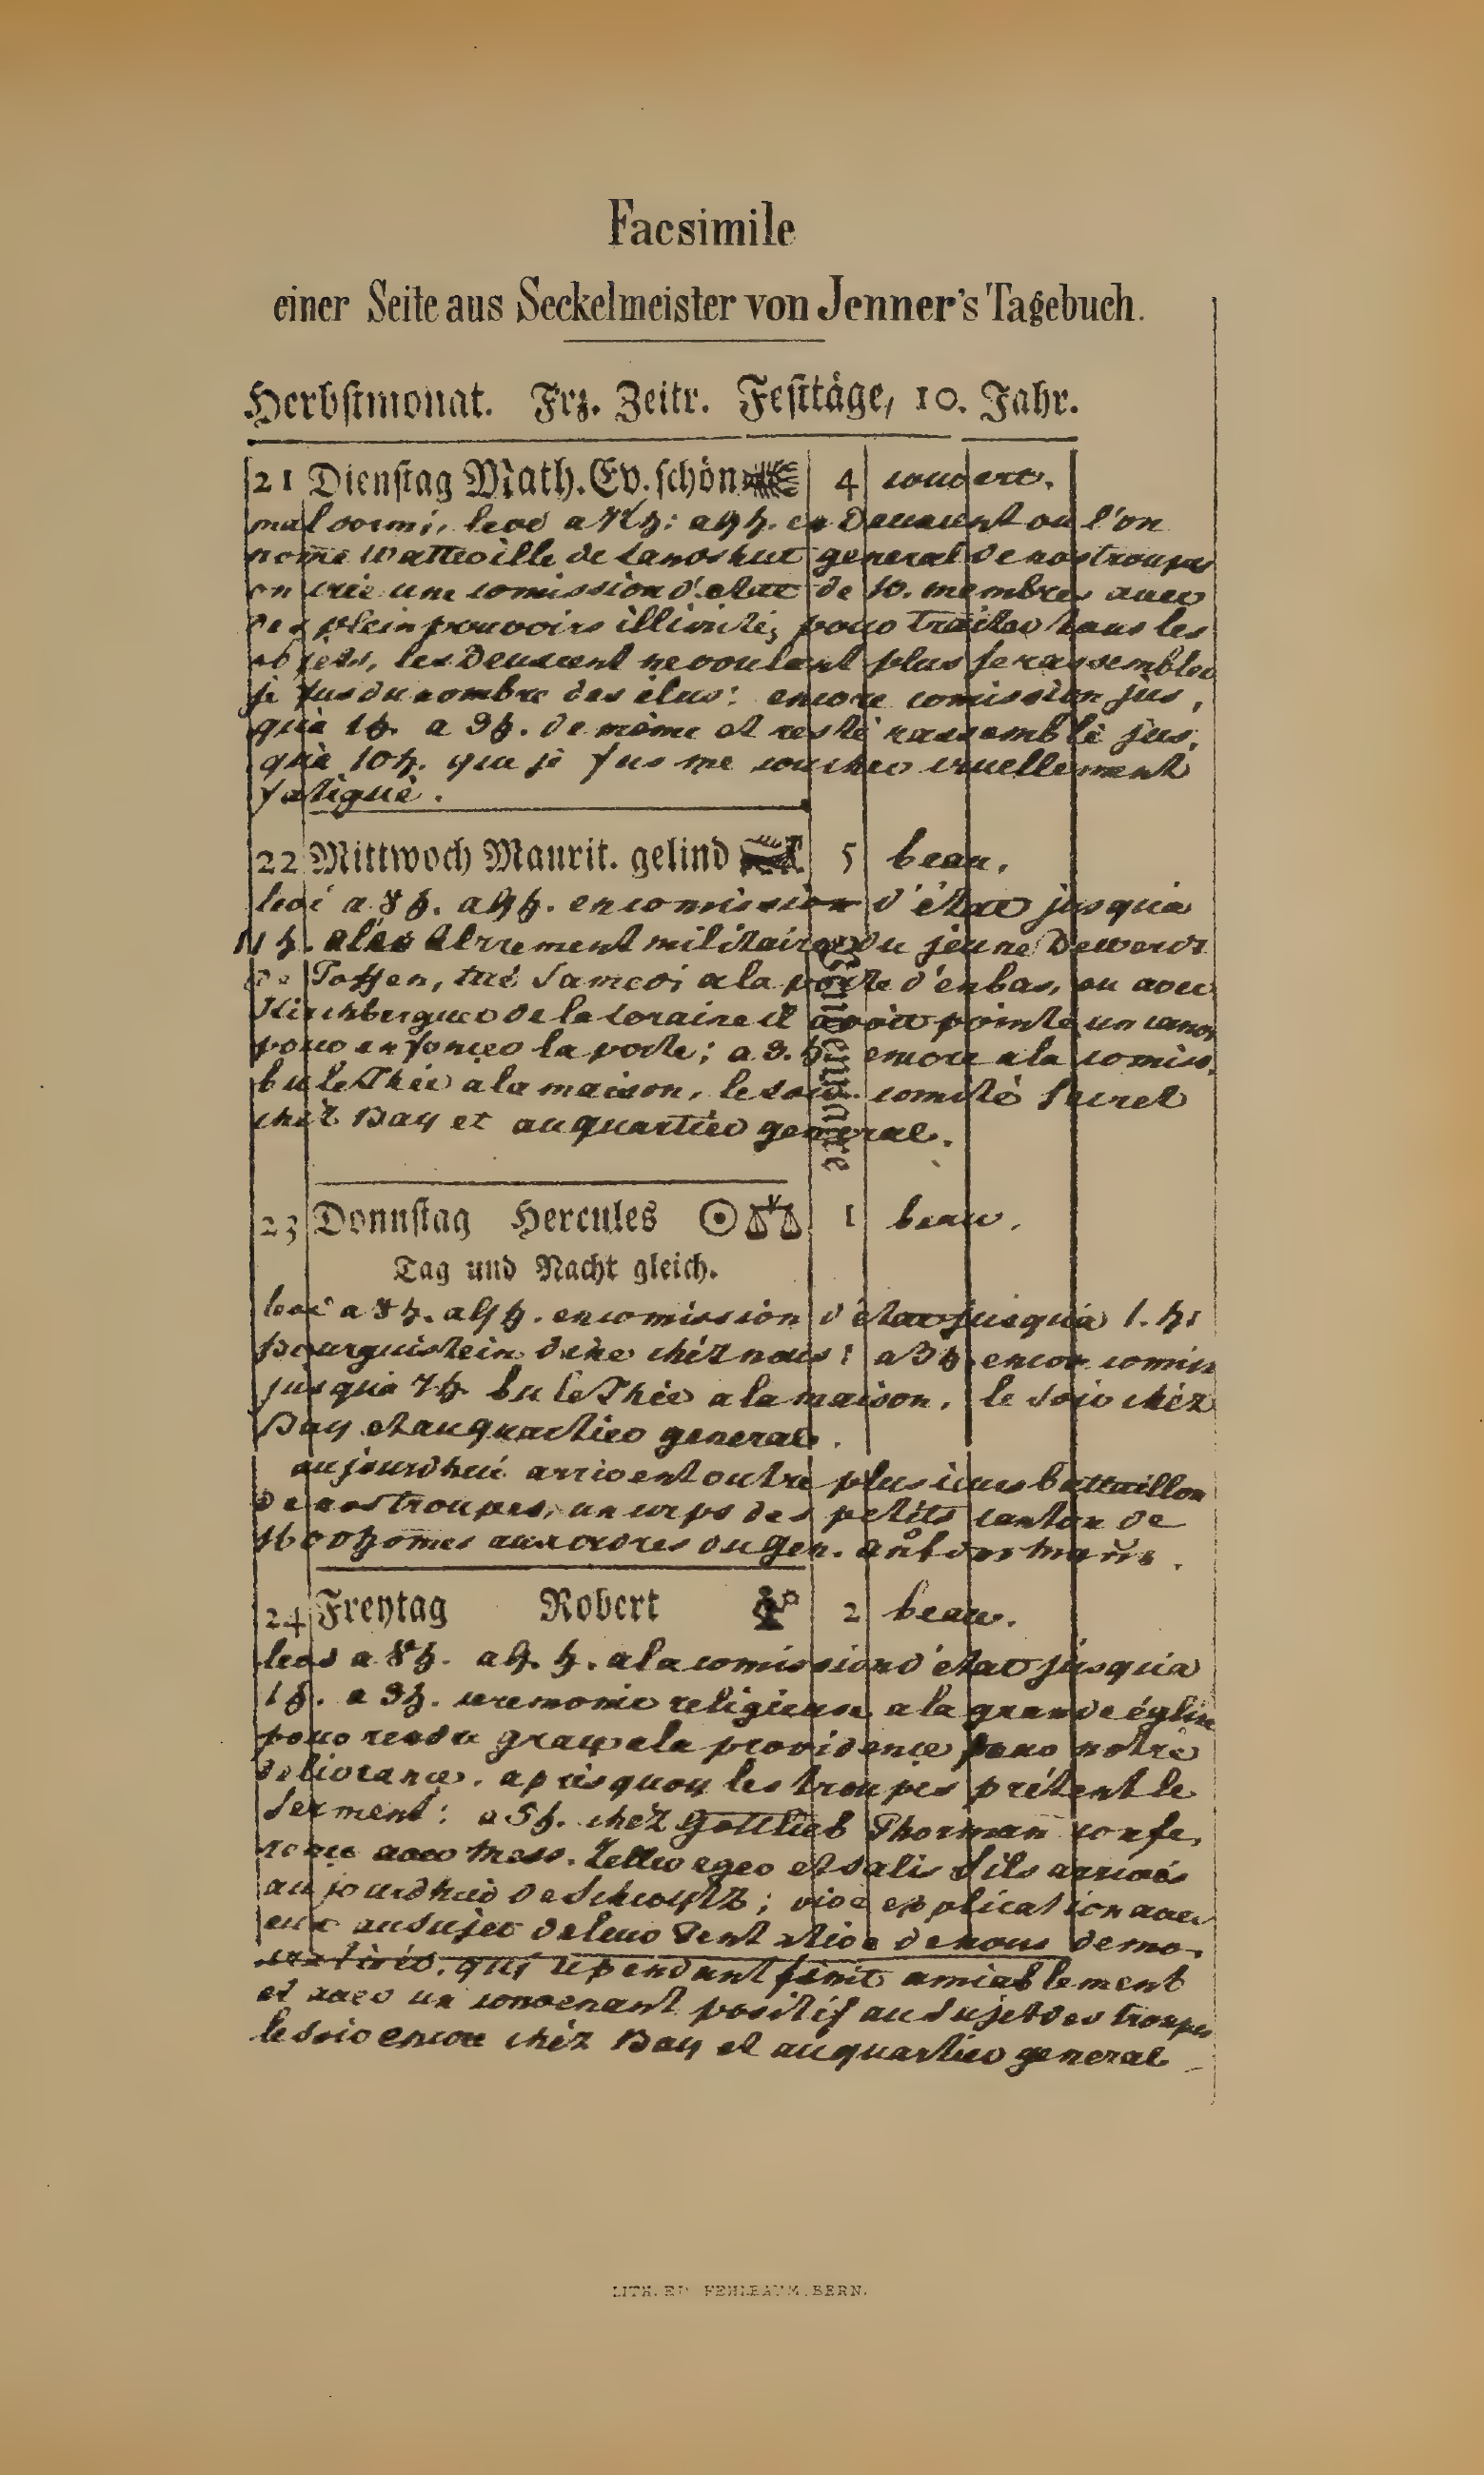 Facsimile
einer Seite aus Seckelmeister von Jenner's Tagebuch.
Herbstmonat. Frz. Zeitr. Festtäge, 10. Jahr.
21 Dienstag Math. Ev. schön 4 couvert.
mal dormi, levé a h: a 9 h. en Deuxcent ou l'on
nome Watteville de Landshut general de nos troupes
on crée une comission d'etat de 10. membres avec
des plein pouvoirs illimités, pour traiter tous les
objets, les Deuxcent ne voulant plus se rassembler
je fus du nombre des élus: encore comission jus,
quà 1 h. a 3 h. de même et resté rassemblé jus,
quà 10 h. que je fus me coucher cruellement
fatigué.
22 Mittwoch Maurit. gelind 5 beau.
levé a 8 h. a 9 h. en comission d'état jusquà
11 h. alés militaire du jeune Dewerdt
de Toffen, tué Samedi a la porte d'enbas, ou avec
Kirchberguer de la Loraine il avoit pointé un canon
pour enfoncer la porte; a 3. h. encore a la comiss.
bu le Thée a la maison, le soir comité Secret
chéz Bay et au quartier general.
23 Donnstag Hercules 1 beau.
Tag und Nacht gleich.
levé a 8 h. a 9 h. en comission d'état jusquà 1. h:
Bourguistein dine chéz nous: a 3 h. encor comiss
jusquà 7 h. bu le Thée a la maison, le soir chéz
Bay et au quartier general.
aujourdhui arrivent outre plusieurs battaillon
de nos troupes, un corps des petits canton de
1600 homes aux ordres du Gen. aufdermaur.
24 Freytag Robert 2 beau.
levé a 8 h. a 9. h. a la comission d'état jusquà
1 h. a 3 h. ceremonie religieuse a la grande église
pour rendre graces a la providence pour notre
delivrance. après quoy les troupes prétent le
serment: a 5 h. chéz Gottlieb Thorman confe,
rence avec mess. Zellweger et Salis Sils arrivés
aujourdhui de Schwytz; vive explication avec
eux au sujet de leur tentative de nous demo,
cratiser, qui cependant finit amiablement
et avec un convenant positif au sujet des troupes
le soir encore chéz Bay et au quartier general
LITH. ED. FEHLBAUM. BERN.